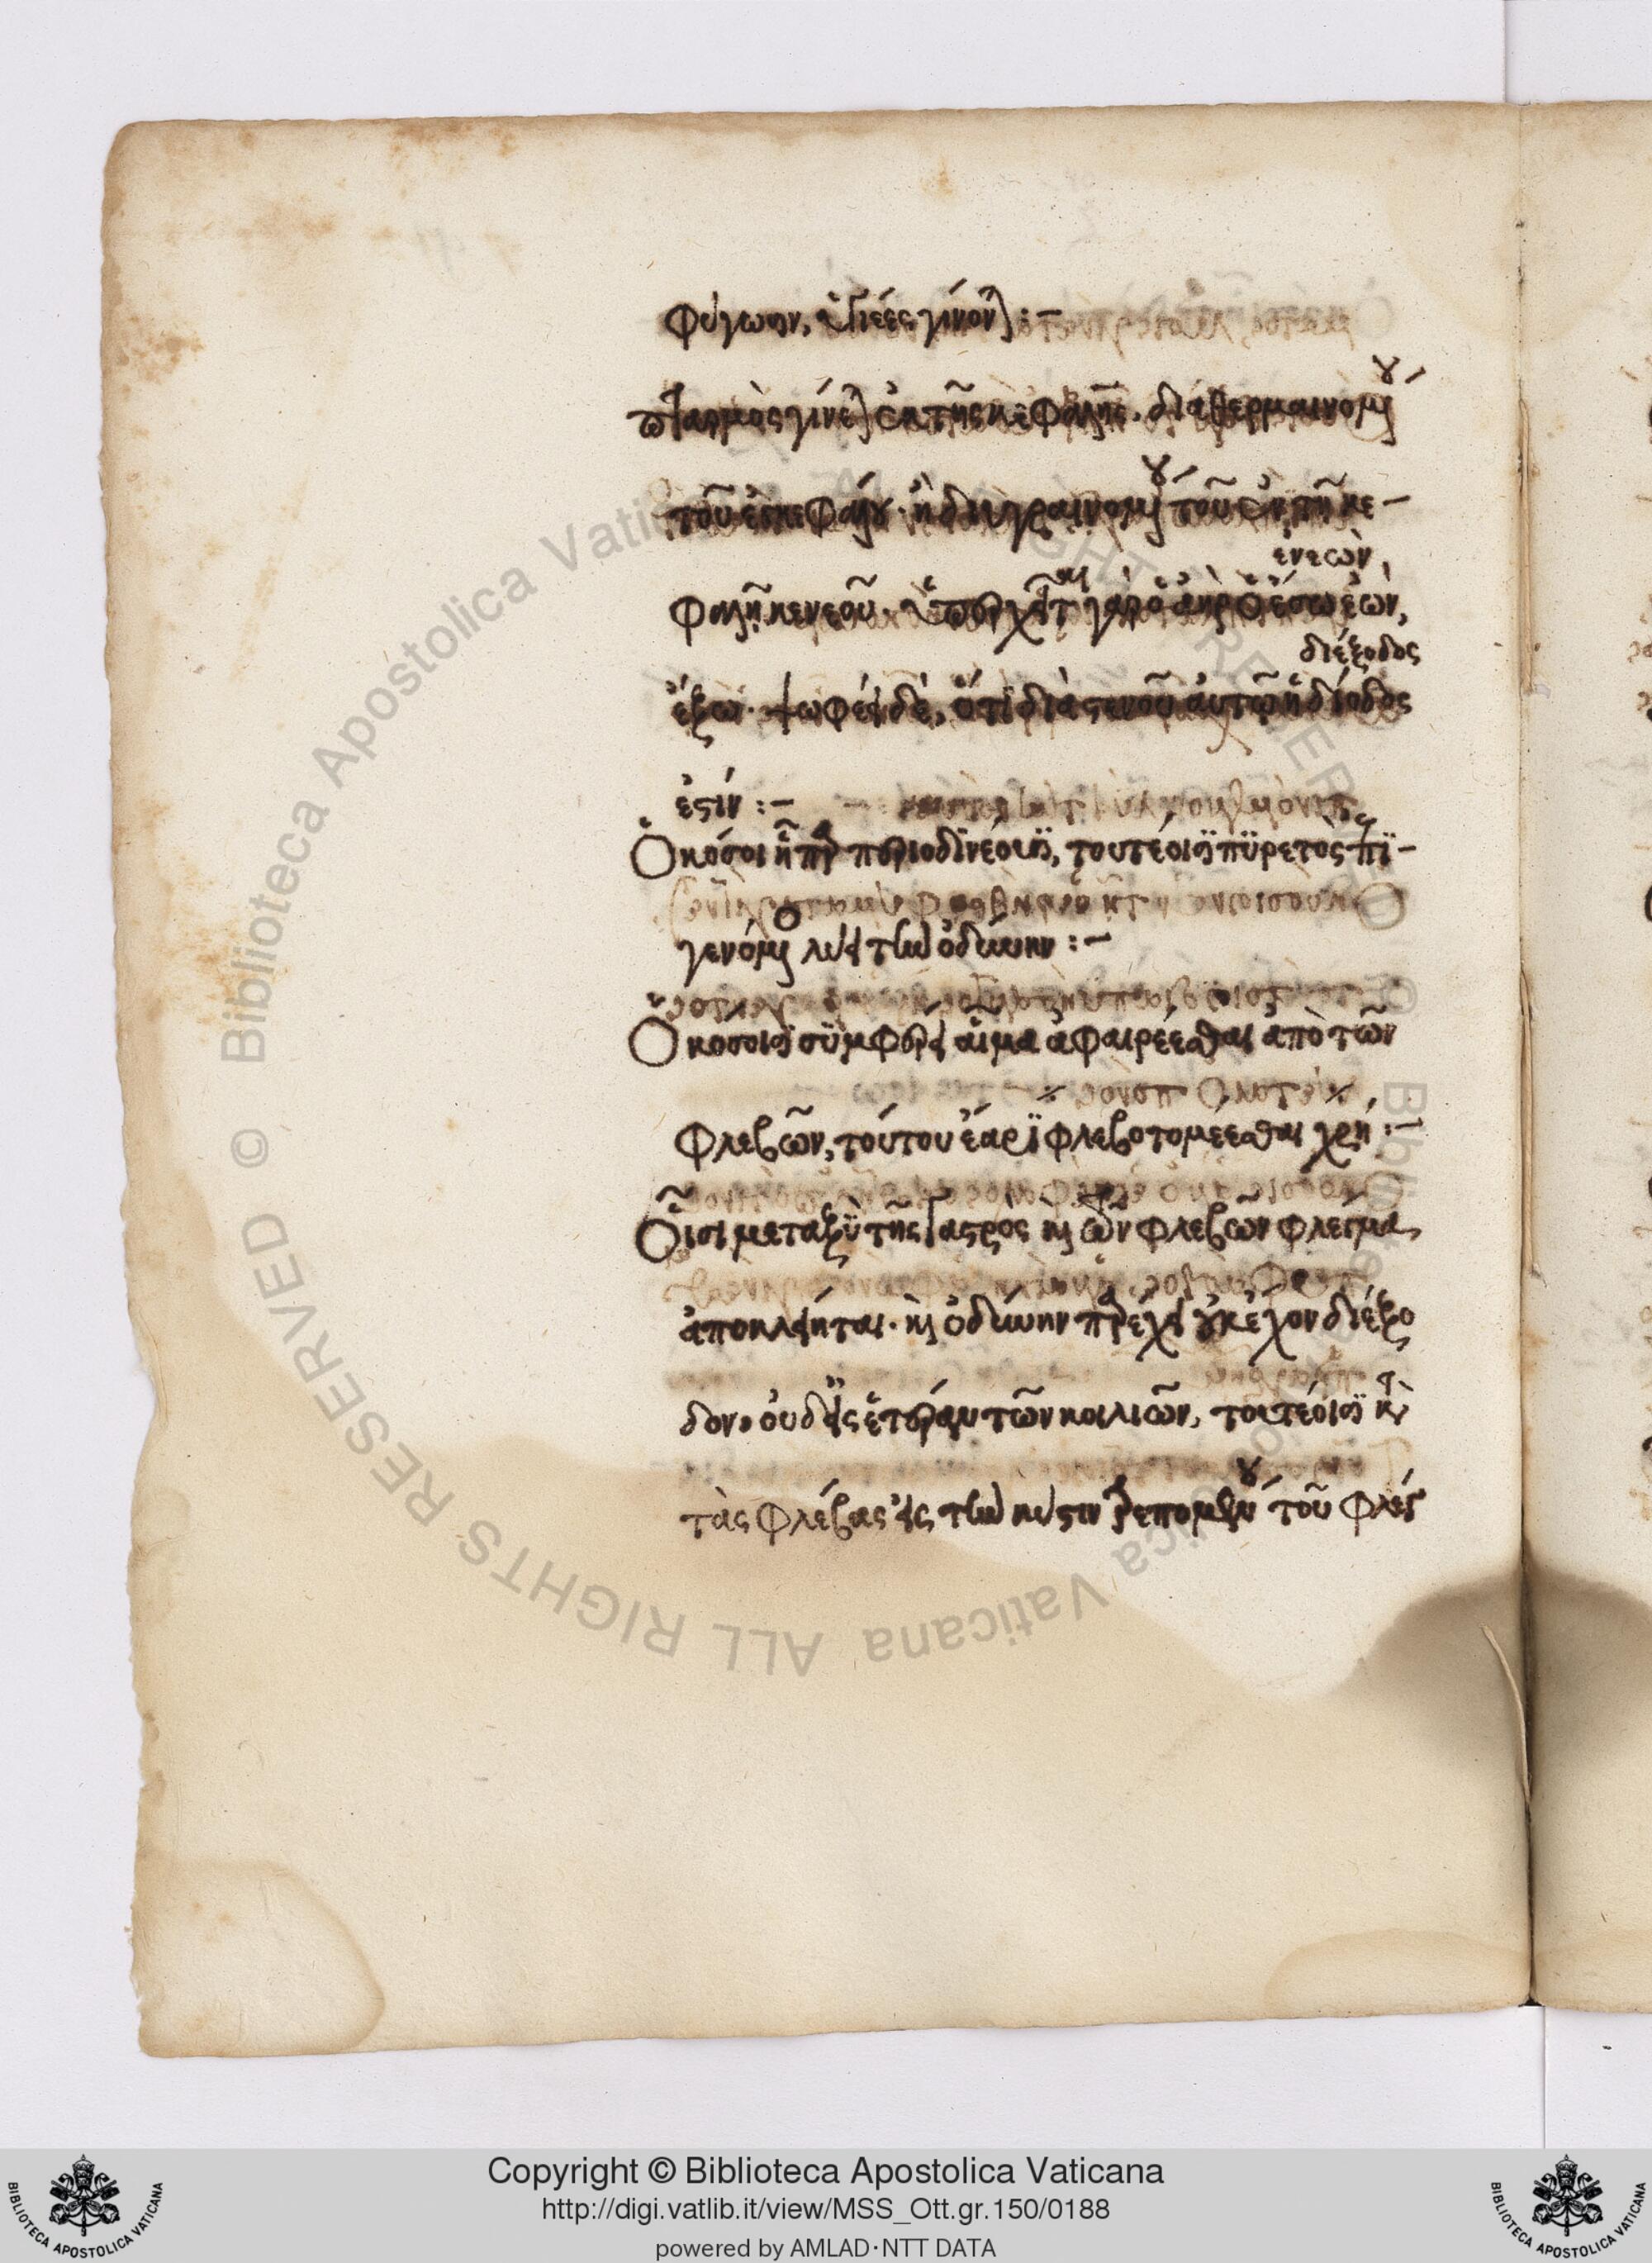 φύγωσιν, ὑγιέες γίνονται :-
πταρμὸς γίνεται ἐκ τῆς κεφαλῆς. διαθερμαινομένου
τοῦ ἐγκεφάλου. ἢ διυγραινομένου τοῦ ἐν τῇ κε-
ἐνεὼν,
φαλῇ κενεοῦ. ὑπερχεῖται γὰρ ὁ ἀὴρ ὁ ἔσω ἐὼν,
διέξοδος
ἔξω. ψωφέει δὲ, ὅτι διὰ στενοῦ αὐτῷ ἡ δίοδος
ἐστίν :-
Ὁκόσοι ἧπαρ περιοδινέουσι, τουτέοισι πυρετὸς ἐπι-
γενόμενος λύει τὴν ὀδύνην :-
Ὁκοσοισι συμφέρει αἷμα ἀφαιρέεσθαι ἀπὸ τῶν
φλεβῶν, τούτου ἔαρι φλεβοτομέεσθαι χρή :-
Οἷσι μεταξὺ τῆς γαστρος καὶ τῶν φλεβῶν φλέγμα
ἀποκλείηται. καὶ ὀδύνην παρέχει οὐκ ἔχον διέξο
δον, οὐδεὶς ἑτέραν τῶν κοιλιῶν, τουτέοισι κατὰ
τὰς φλέβας εἰς τὴν κύστιν τρεπομένου τοῦ φλέγ
Copyright © Biblioteca Apostolica Vaticana
http://digi.vatlib.it/view/MSS_Ott.gr.150/0188
powered by AMLAD·NTT DATA
BIBLIOTECA APOSTOLICA VATICANA
BIBLIOTECA APOSTOLICA VATICANA
© Biblioteca Apostolica Vaticana ALL RIGHTS RESERVED